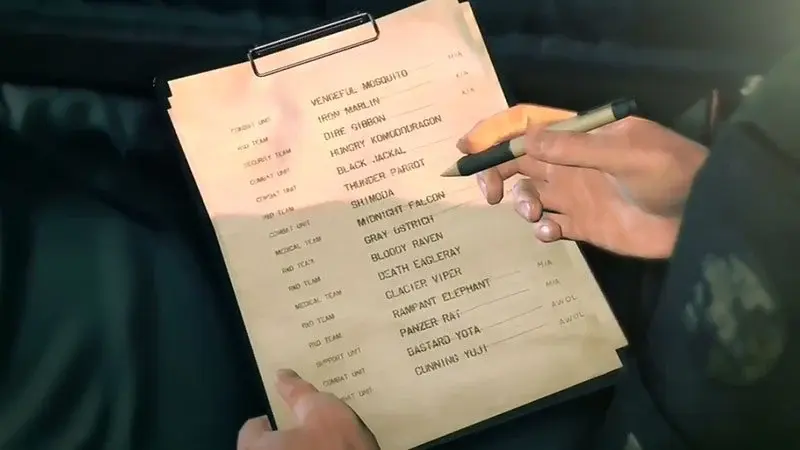 COMBAT UNIT VENGEFUL MOSQUITO MIA
RND TEAM IRON MARLIN KIA
SECURITY TEAM DIRE GIBBON KIA
COMBAT UNIT HUNGRY KOMODODRAGON
COMBAT UNIT BLACK JACKAL
RND TEAM THUNDER PARROT
COMBAT UNIT SHIMODA
MEDICAL TEAM MIDNIGHT FALCON
RND TEAM GRAY OSTRICH
RND TEAM BLOODY RAVEN
MEDICAL TEAM DEATH EAGLERAY
RND TEAM GLACIER VIPER
RND TEAM RAMPANT ELEPHANT MIA
SUPPORT UNIT PANZER RAT MIA
COMBAT UNIT BASTARD YOTA AWOL
COMBAT UNIT CUNNING YUJI AWOL